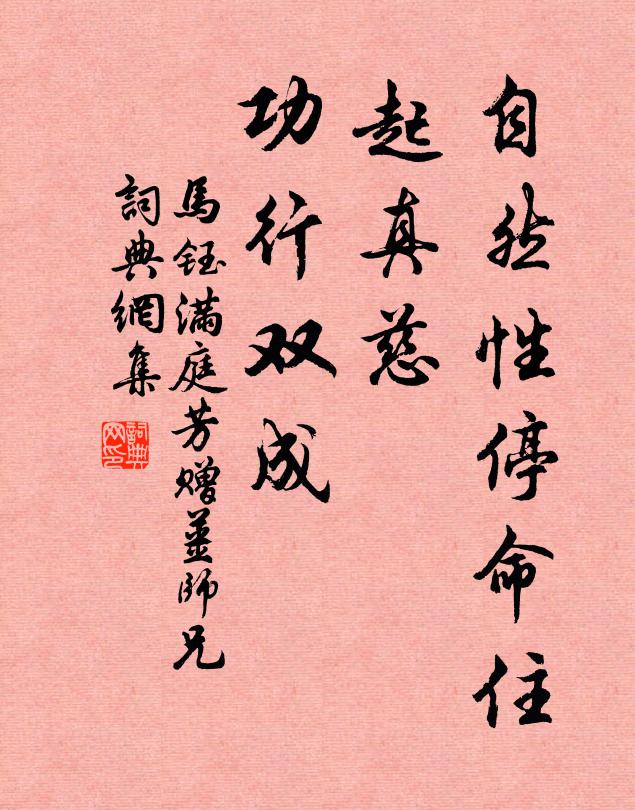 自然性停命住
起真慈
功行双成
馬鈺滿庭芳贈薑師兄
詞典網集
詞典网印